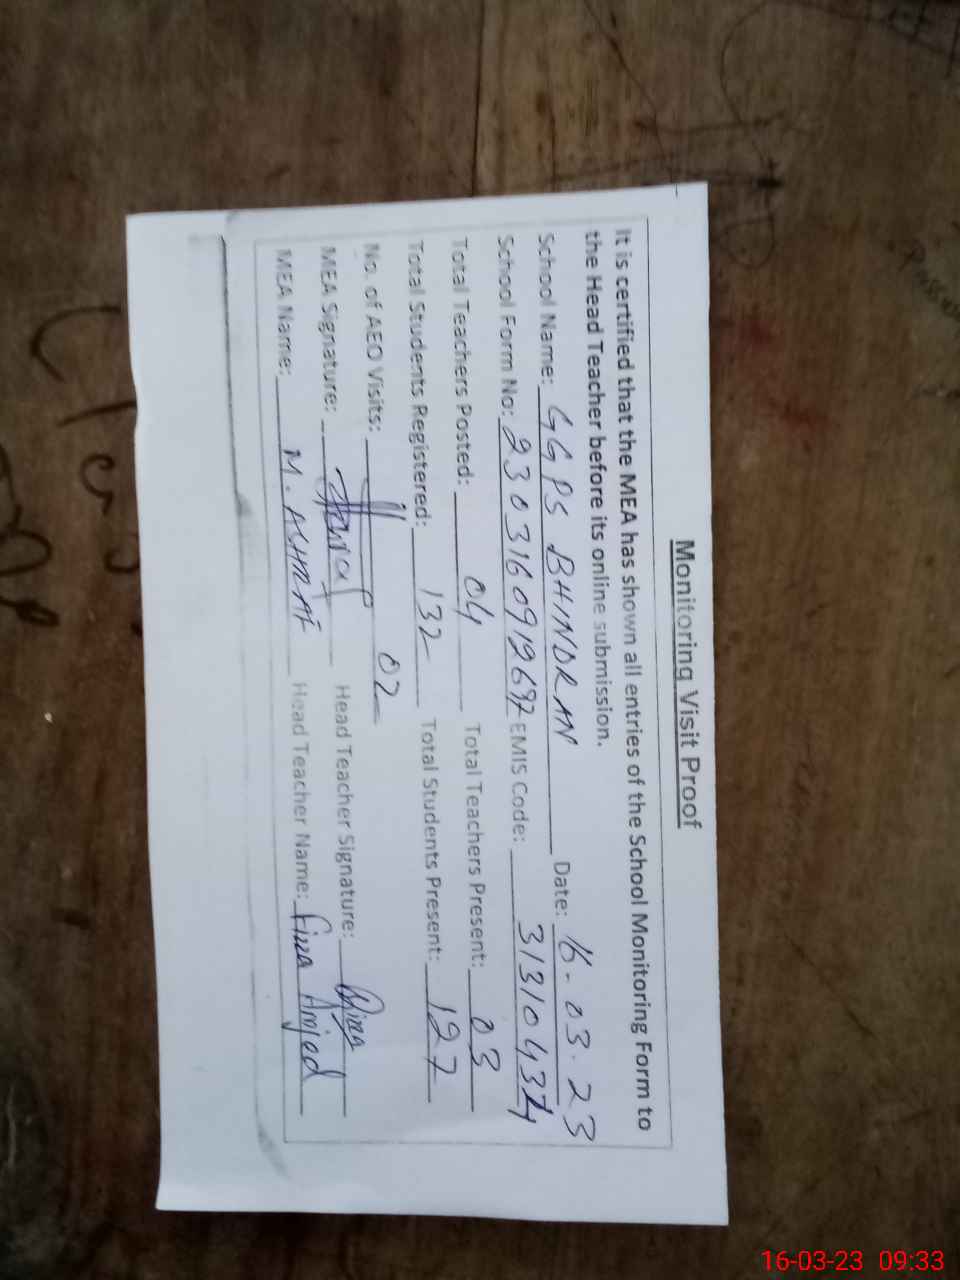 Monitoring Visit Proof
It is certified that the MEA has shown all entries of the School Monitoring Form to
the Head Teacher before its online submission.
School Name: GGPS BHINDRAN Date: 16.03.23
School Form No: EMIS Code:
Total Teachers Posted: 04 Total Teachers Present: 03
Total Students Registered: 132 Total Students Present: 127
No. of AEO Visits: 02
MEA Signature: Head Teacher Signature:
MEA Name: M. ASHRAF Head Teacher Name: Fizza Amjad
16-03-23 09:33